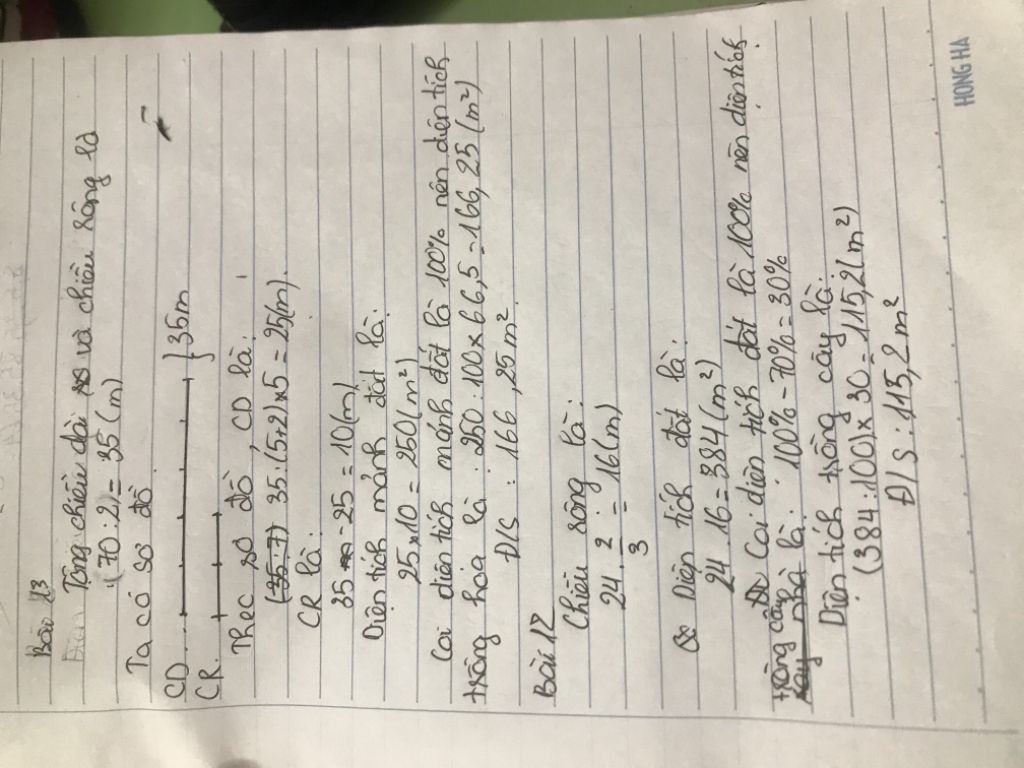 Bài 13
Tổng chiều dài và chiều rộng là
(70 : 2) = 35 (m)
Ta có sơ đồ
CD
} 35m
CR.
Theo sơ đồ, CD là:
35 : (5+2) x 5 = 25 (m).
CR là:
35 - 25 = 10 (m)
Diện tích mảnh đất là:
25 x 10 = 250 (m²)
Coi diện tích mảnh đất là 100% nên diện tích
trồng hoa là : 250 : 100 x 66,5 = 166,25 (m²)
Đ/S : 166,25 m²
Bài 12
Chiều rộng là:
24 . 2/3 = 16 (m)
Diện tích đất là:
24 . 16 = 384 (m²)
Coi diện tích đất là 100% nên diện tích
trồng cây là : 100% - 70% = 30%
Diện tích trồng cây là:
(384 : 100) x 30 = 115,2 (m²)
Đ/S : 115,2 m²
HONG HA